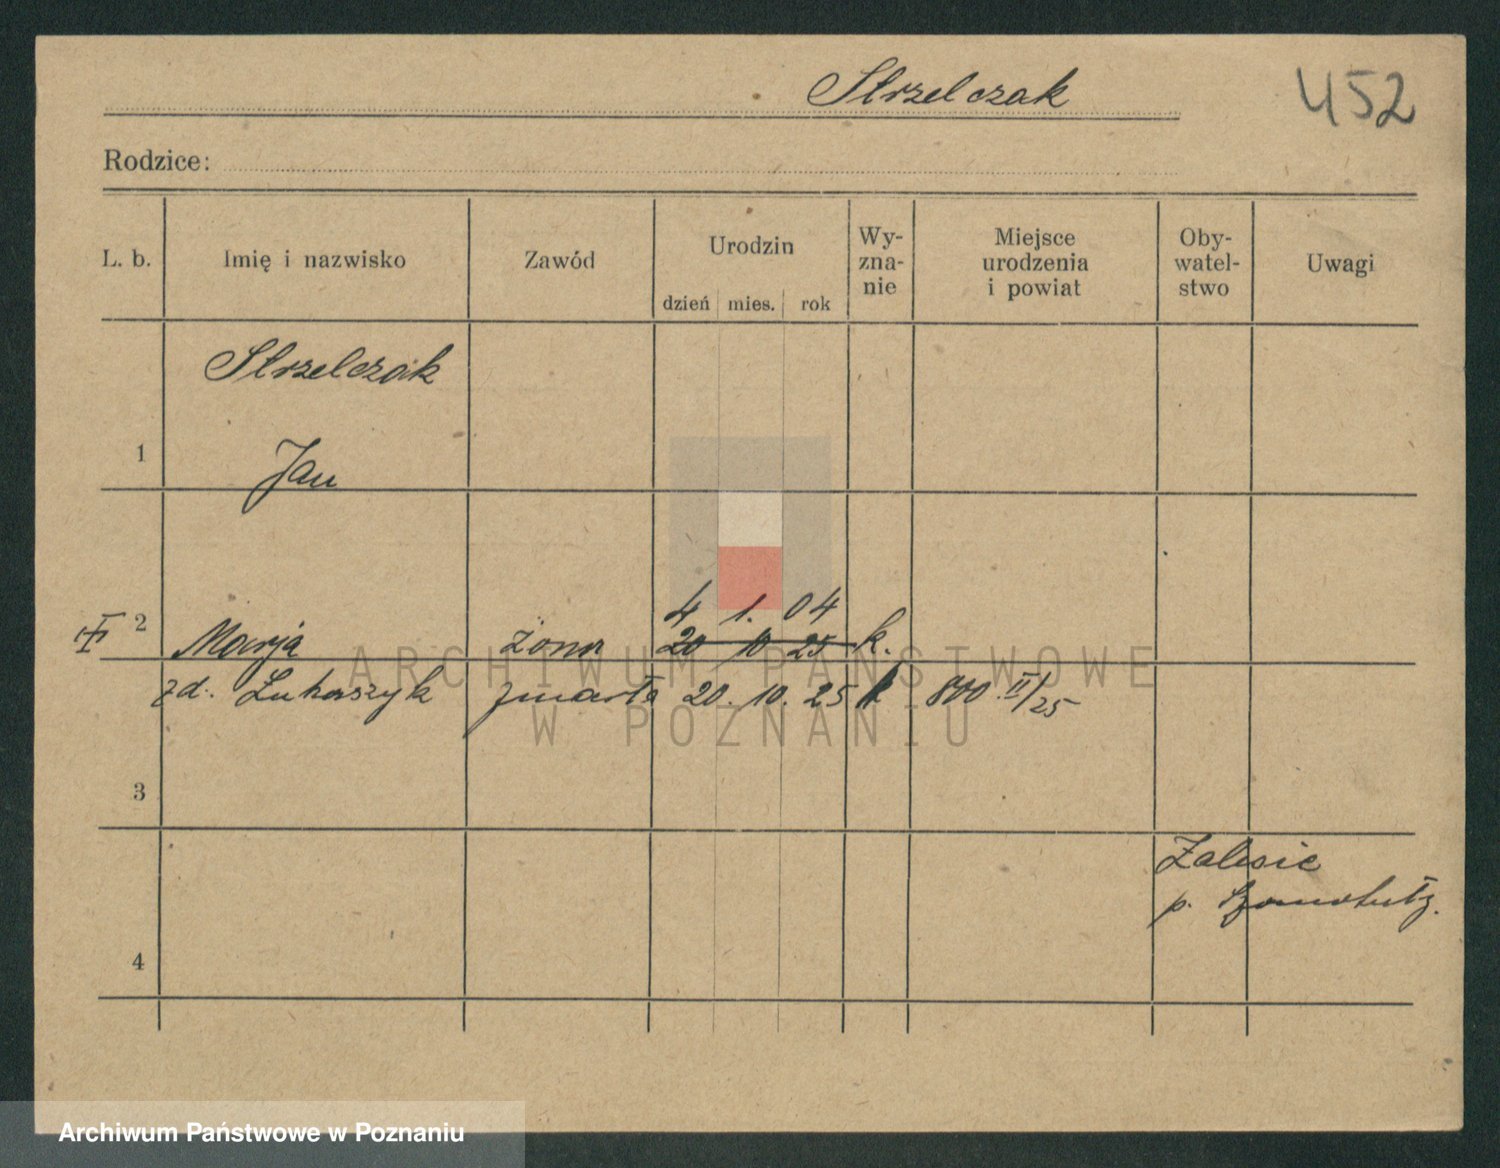 Strzelczak
452
Rodzice:
L. b. Imię i nazwisko Zawód Urodzin dzień mies. rok Wy-zna-nie Miejsce urodzenia i powiat Oby-watel-stwo Uwagi
Strzelczak
1 Jan
4 1. 04
2 Marja żona 20 10 25 k.
zd. Łukaszyk zmarła 20. 10. 25 800 II/25
3
Zalesie
p.
4
ARCHIWUM PAŃSTWOWE
W POZNANIU
Archiwum Państwowe w Poznaniu